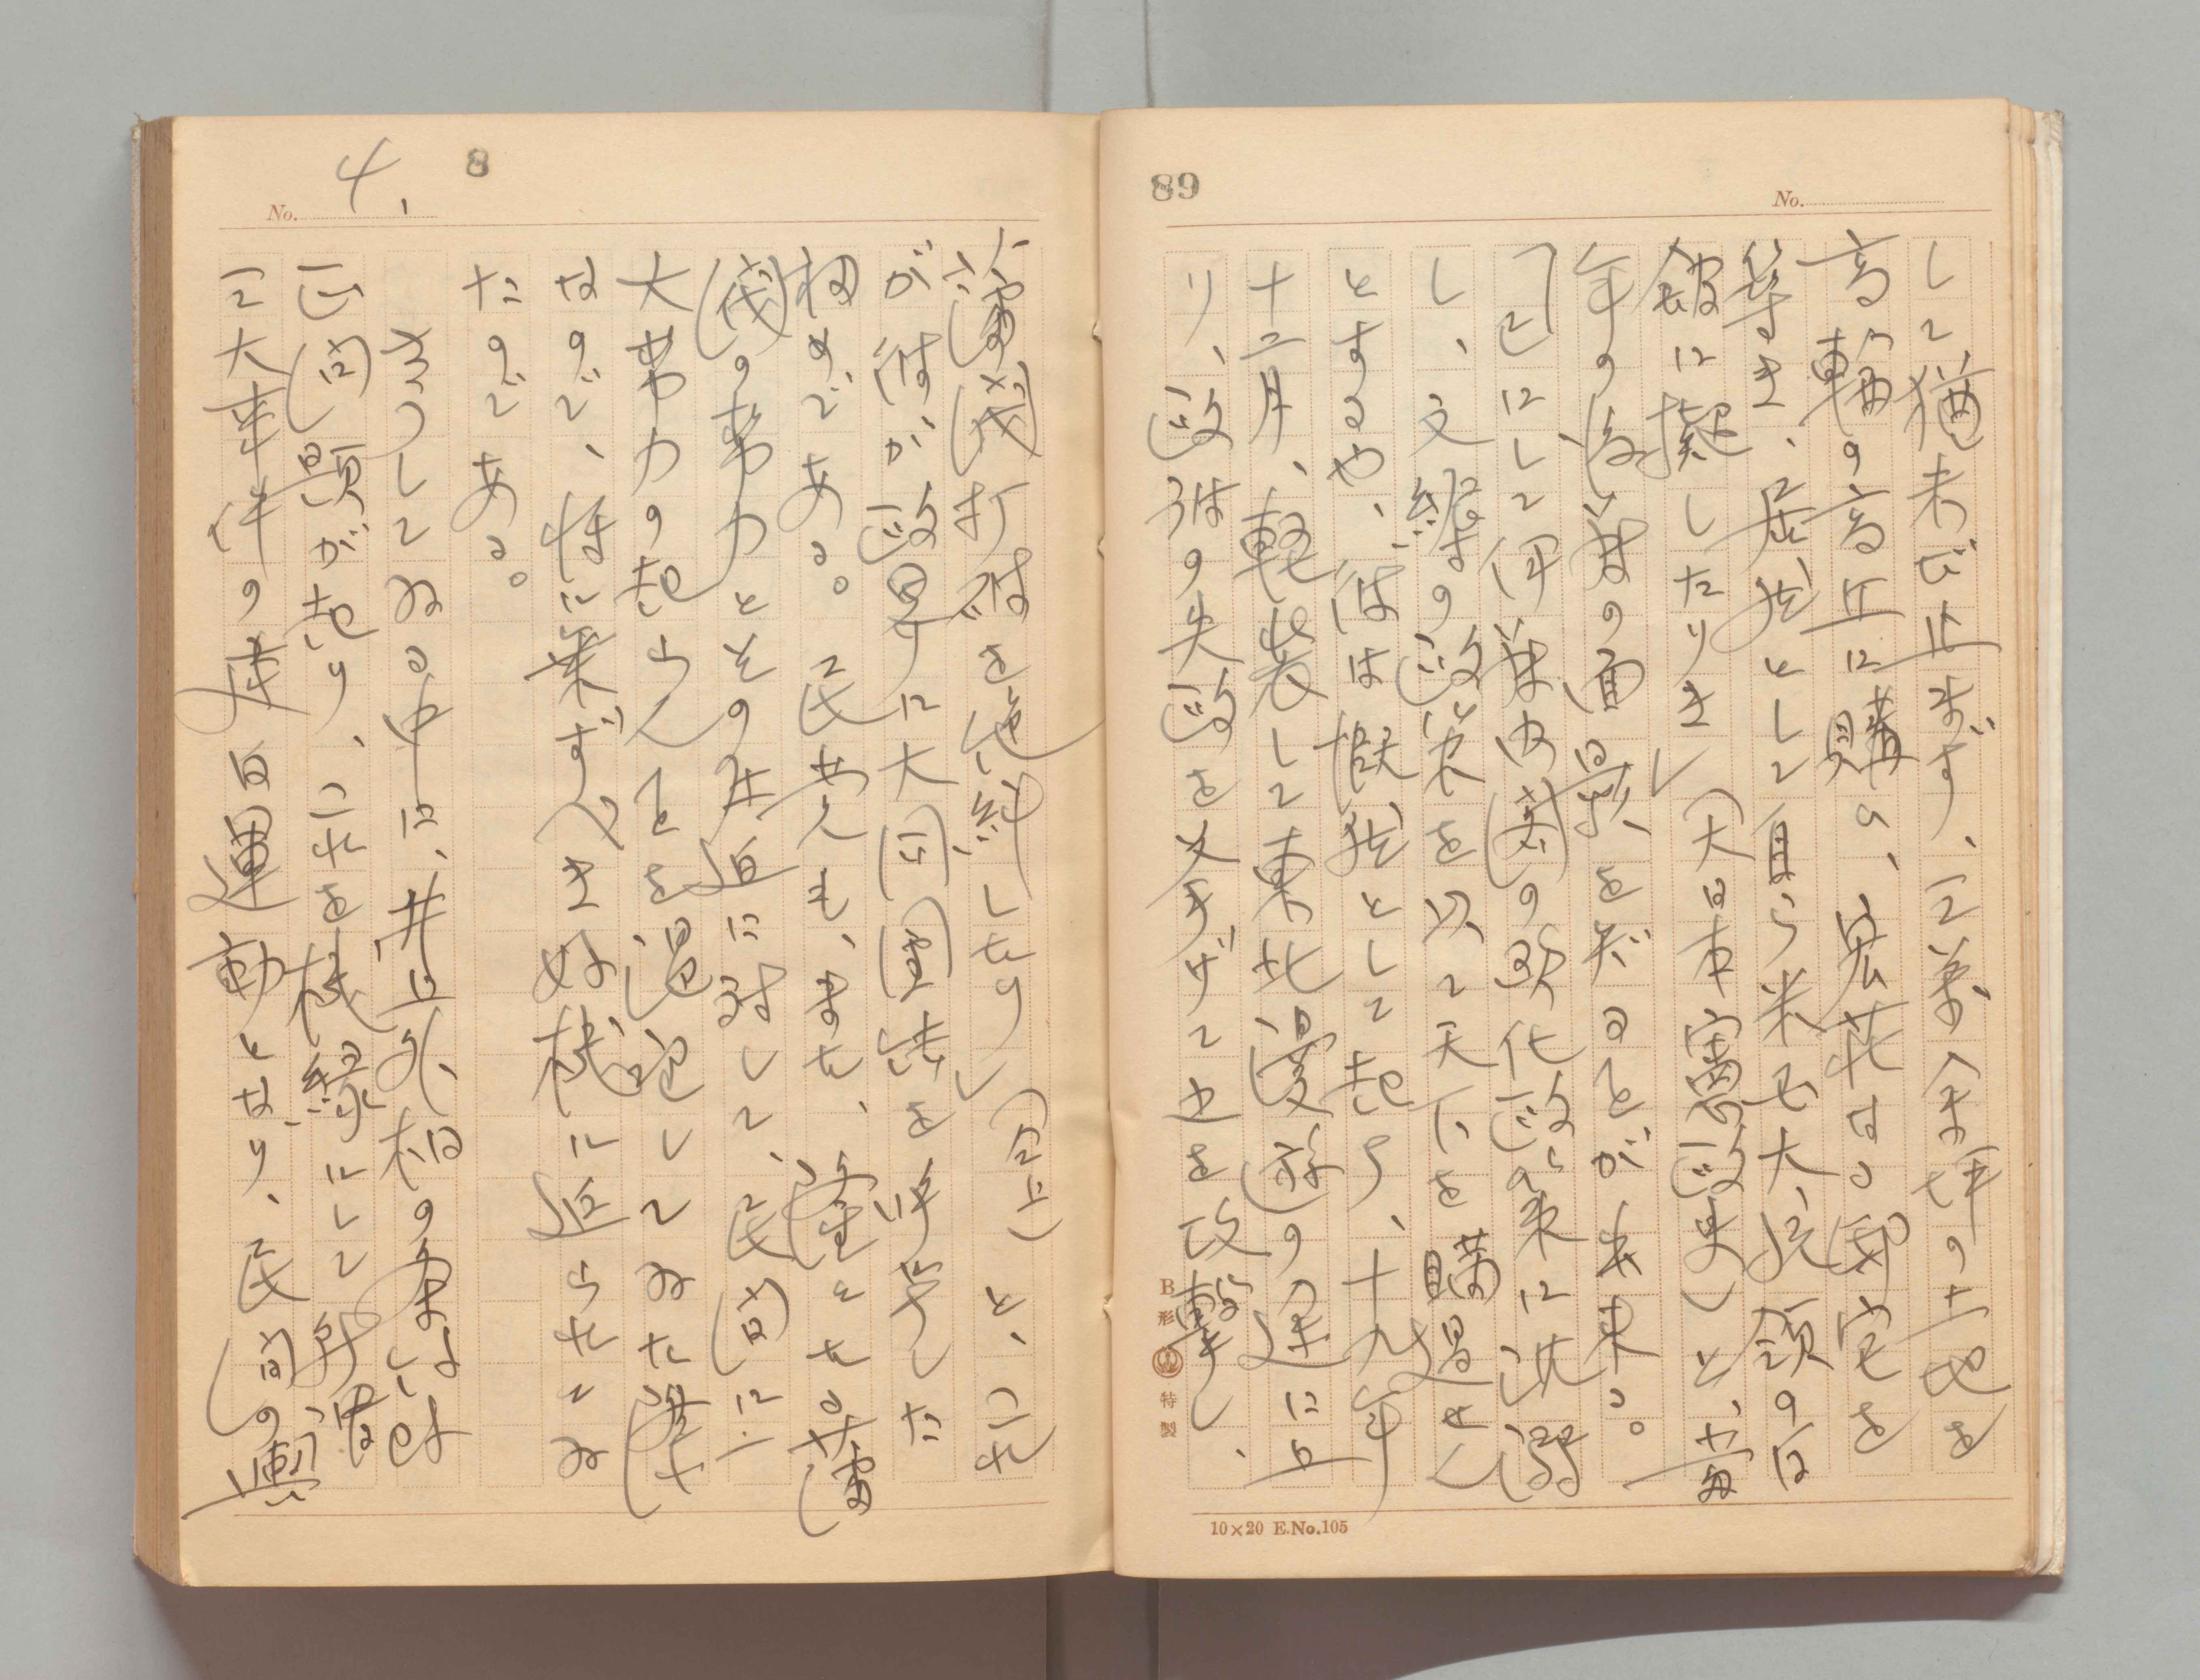 89
No.
して猶未だ止まず、二萬余坪の土地を
高輪の高丘に購ひ、宏荘なる邸宅を
築き、居然として自ら米国大統領の白
館に擬したりき」(大日本憲政史)と、当
年の後藤の面影をだることが出来る。
已にして伊藤内閣の欧化政策に沈溺
し、文縟の政策を以て天下を瞞過せん
とするや、彼は慨然として起ち、十九年
十二月、軽装して東北漫遊の途に上
り、政府の失政を文挙げて之を攻撃し、
B形 特製
10×20 E.No.105
8
No. 4.
藩閥打破を絶叫したり」(同上)と、これ
が彼が政界に大同団結を呼号した
初めである。民党も、また、薩長藩
閥の勢力とその圧迫に対して、民間に一
大勢力の起らんことを渇望してゐた際
なので、将に乗ずべき好機に迫られてゐ
たのである。
さうしてゐる中に、井上外相の条約改
正問題が起り、これを機縁にして弁護
二大事件の建白運動となり、民間の輿